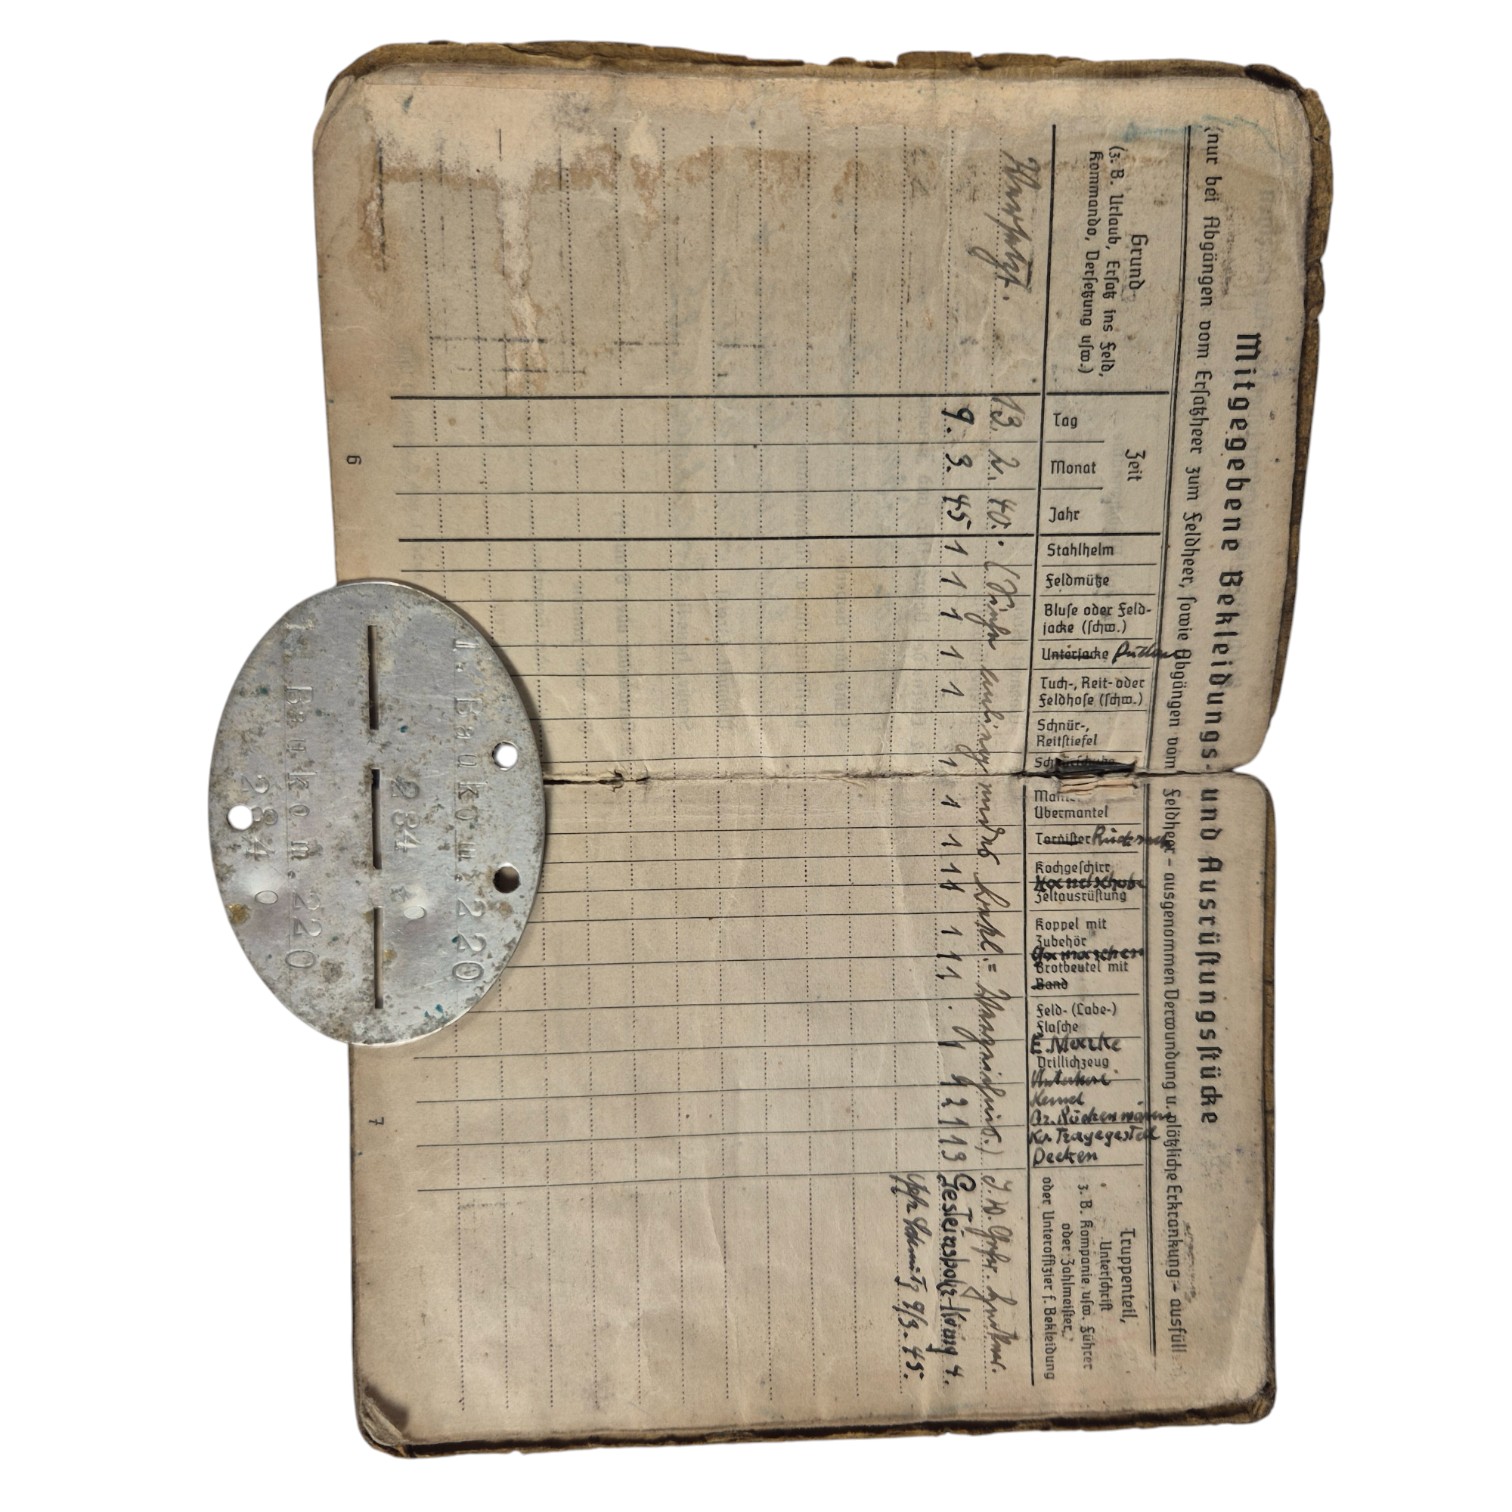 Mitgegebene Bekleidungs- und Ausrüstungsstücke
(nur bei Abgängen vom Ersatzheer zum Feldheer, sowie Abgängen vom Feldheer – ausgenommen Verwundung u. plötzliche Erkrankung – ausfüll
Grund
(z. B. Urlaub, Ersatz ins Feld,
Kommando, Versetzung usw.)
Zeit
Tag
Monat
Jahr
Stahlhelm
Feldmütze
Bluse oder Feld-
jacke (schw.)
Unterjacke
Tuch-, Reit- oder
Feldhose (schw.)
Schnür-,
Reitstiefel
Schnürschuhe
Übermantel
Tornister Rucksack
Kochgeschirr
Handschuhe
Zeltausrüstung
Koppel mit
Zubehör
Gamaschen
Brotbeutel mit
Band
Feld- (Labe-)
Flasche
E. Marke
Drillichzeug
Unterhose
Hemd
Gr. Rücken
Kr. Tragegestell
Decken
Truppenteil,
Unterschrift
z. B. Kompanie usw. Führer
oder Zahlmeister,
oder Unteroffizier f. Bekleidung
Versetzt. 13. 2. 40. (Siehe Bekl.= Verzeichnis.) I. V. Gefr.
9. 3. 45 1 1 1 1 1 1 1 1 1 1 1 1 1 1 2 1 1 3
9/3. 45.
6
7
1. Baukom. 220
284 0
1. Baukom. 220
284 0